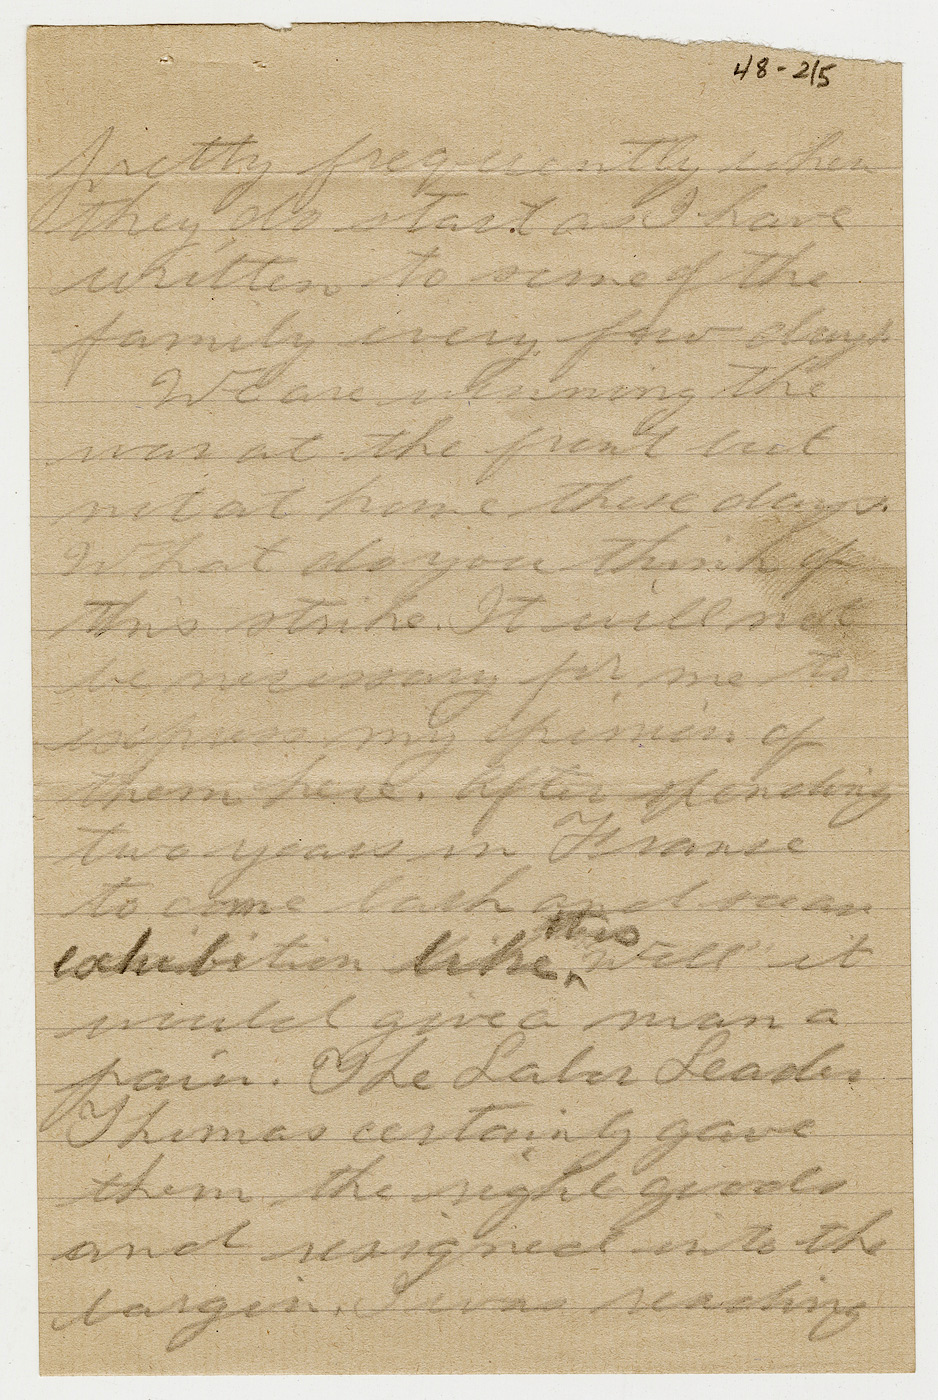 48-215
pretty frequently when
they do start as I have
written to some of the
family every few days.
We are winning the
war at the front but
not at home these days.
What do you think of
this strike. It will not
be necessary for me to
express my opinion of
them here. After spending
two years in France
to come back and see an
exhibition like this Well it
would give a man a
pain. The Labor Leader
Thomas certainly gave
them the right goods
and resigned into the
bargin. I was reading